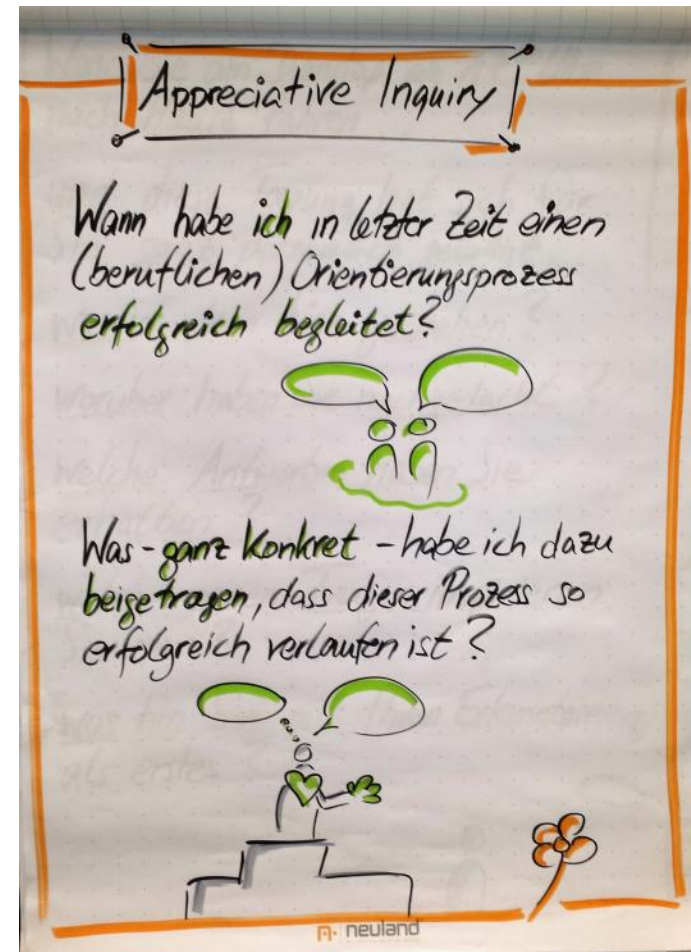 Appreciative Inquiry
Wann habe ich in letzter Zeit einen
(beruflichen) Orientierungsprozess
erfolgreich begleitet?
Was - ganz konkret - habe ich dazu
beigetragen, dass dieser Prozess so
erfolgreich verlaufen ist?
neuland